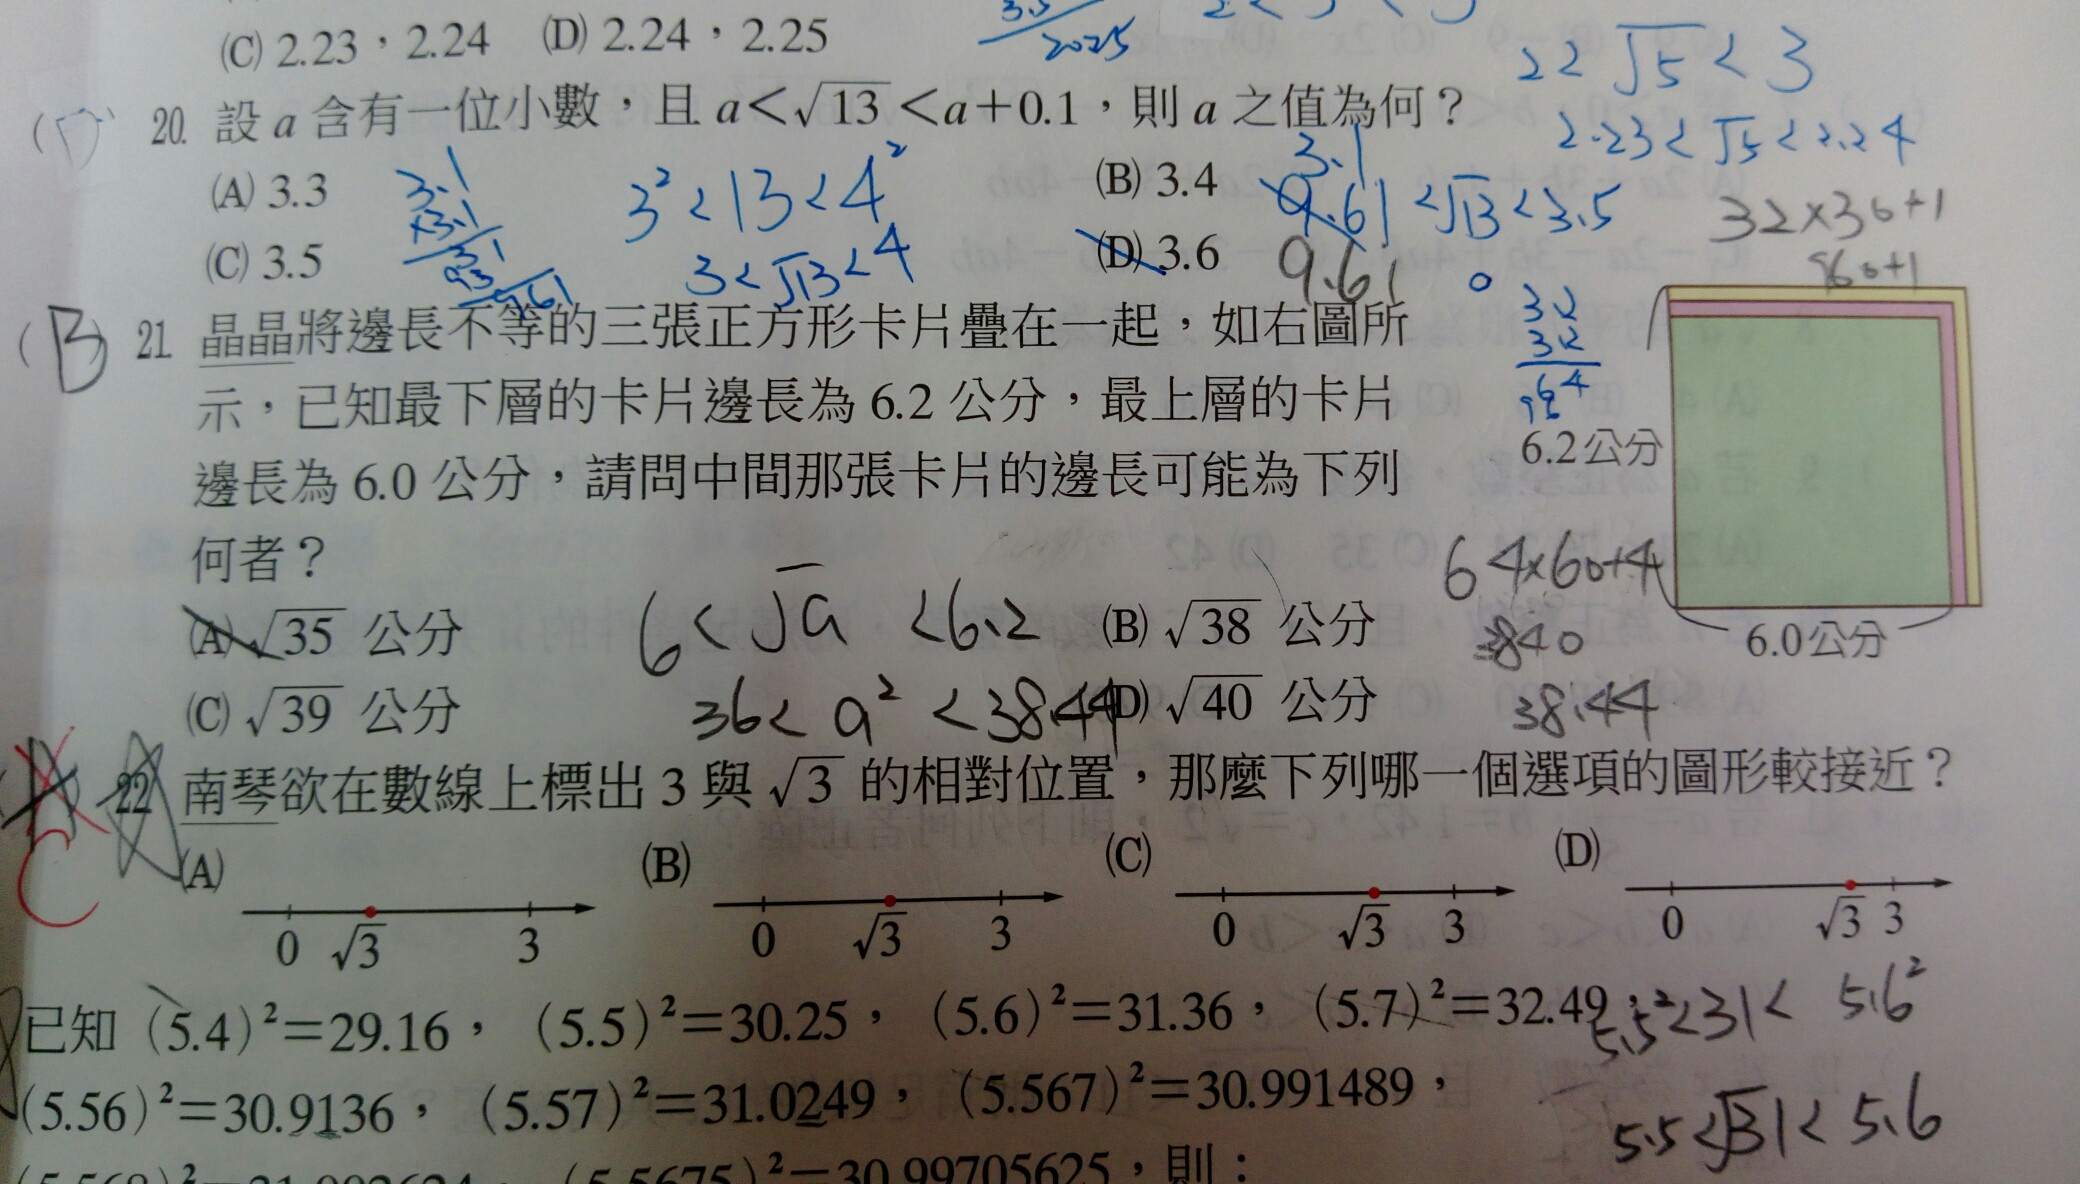 (C) 2.23，2.24 (D) 2.24，2.25
2025
2 < √5 < 3
2.23 < √5 < 2.24
20. 設 a 含有一位小數，且 a<√13<a+0.1，則 a 之值為何？
(A) 3.3
(B) 3.4
(C) 3.5
(D) 3.6
3.1
×3.1
31
93
961
3² < 13 < 4²
3 < √13 < 4
3.1
9.61 < √13 < 3.5
9.61
32×30+1
960+1
(B) 21. 晶晶將邊長不等的三張正方形卡片疊在一起，如右圖所
示，已知最下層的卡片邊長為 6.2 公分，最上層的卡片
邊長為 6.0 公分，請問中間那張卡片的邊長可能為下列
何者？
32
32
64
96
6.2公分
6.0公分
64×60+4
3840
38.44
(A) √35 公分
(B) √38 公分
(C) √39 公分
(D) √40 公分
6 < √a < 6.2
36 < a² < 38.44
C
22 南琴欲在數線上標出 3 與 √3 的相對位置，那麼下列哪一個選項的圖形較接近？
(A)
0 √3 3
(B)
0 √3 3
(C)
0 √3 3
(D)
0 √3 3
已知（5.4）²＝29.16，（5.5）²＝30.25，（5.6）²＝31.36，（5.7）²＝32.49，
5.5² < 31 < 5.6²
（5.56）²＝30.9136，（5.57）²＝31.0249，（5.567）²＝30.991489，
5.5 < √31 < 5.6
（5.5675）²＝30.99705625，則：